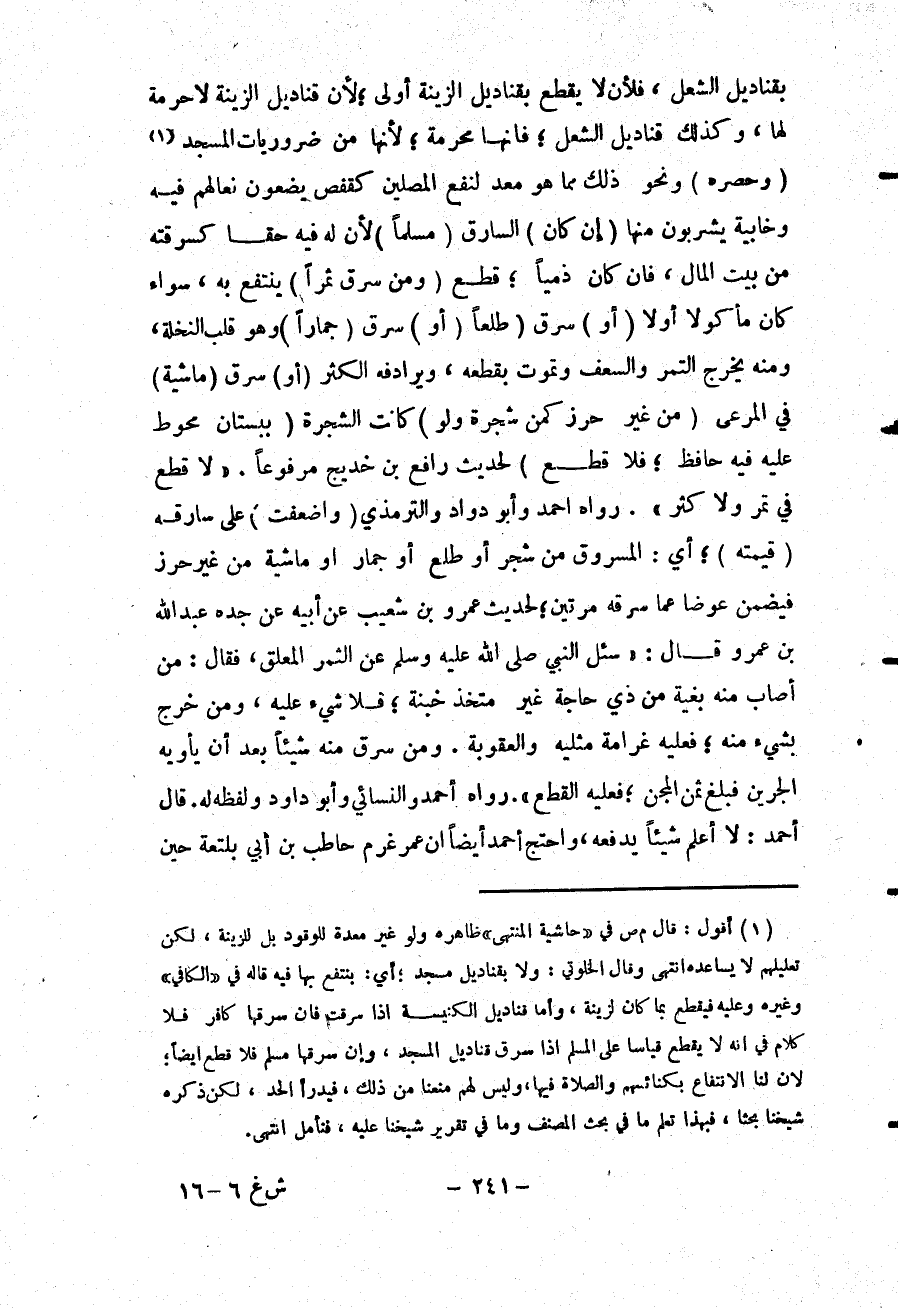 بقناديل الشعل ، فلأن لا يقطع بقناديل الزينة أولى ؛ لأن قناديل الزينة لا حرمة
لها ، وكذلك قناديل الشعل ؛ فانهـا محرمة ؛ لأنها من ضروريات المسجد (١)
( وحصره ) ونحو ذلك مما هو معد لنفع المصلين كقفص يضعون نعالهم فيـه
وخابية يشربون منها ( إن كان ) السارق ( مسلماً ) لأن له فيه حقـــا كسرقته
من بيت المال ، فان كان ذمياً ؛ قطـع ( ومن سرق ثمراً ) ينتفع به ، سواء
كان مأكولا أولا ( أو ) سرق ( طلعاً ( أو ) سرق ( جماراً ) وهو قلب النخلة ،
ومنه يخرج التمر والسعف وتموت بقطعه ، ويرادفه الكثر ( أو ) سرق ( ماشية )
في المرعى ( من غير حرز كمن شجرة ولو ) كانت الشجرة ( ببستان محوط
عليه فيه حافظ ؛ فلا قطــــع ) لحديث رافع بن خديج مرفوعاً . « لا قطع
في تمر ولا كثر » . رواه احمد وأبو دواد والترمذي ( واضعفت ) على سارقـه
( قيمته ) ؛ أي : المسروق من شجر أو طلع أو جمار او ماشية من غير حرز
فيضمن عوضا عما سرقه مرتين ؛ لحديث عمرو بن شعيب عن أبيه عن جده عبدالله
بن عمرو قـــال : « سئل النبي صلى الله عليه وسلم عن الثمر المعلق ، فقال : من
أصاب منه بغية من ذي حاجة غير متخذ خبنة ؛ فـلا شيء عليه ، ومن خرج
بشيء منه ؛ فعليه غرامة مثليه والعقوبة . ومن سرق منه شيئاً بعد أن يأويه
الجرين فبلغ ثمن المجن ؛ فعليه القطع » . رواه أحمد والنسائي وأبو داود ولفظه له . قال
أحمد : لا أعلم شيئاً يدفعه ، واحتج أحمد أيضاً ان عمر غرم حاطب بن أبي بلتعة حين
(١) أقول : قال م ص في «حاشية المنتهى» ظاهره ولو غير معدة للوقود بل للزينة ، لكن
تعليلهم لا يساعده انتهى وقال الخلوتي : ولا بقناديل مسجد ؛ أي : ينتفع بها فيه قاله في «الكافي»
وغيره وعليه فيقطع بما كان لزينة ، وأما قناديل الكنيســة اذا سرقت فان سرقها كافر فـلا
كلام في انه لا يقطع قياسا على المسلم اذا سرق قناديل المسجد ، وإن سرقها مسلم فلا قطع ايضاً ؛
لان لنا الانتفاع بكنائسهم والصلاة فيها ، وليس لهم منعنا من ذلك ، فيدرأ الحد ، لكن ذكره
شيخنا بحثا ، فبهذا تعلم ما في بحث المصنف وما في تقرير شيخنا عليه ، فتأمل انتهى .
- ٢٤١ -
ش غ ٦ - ١٦